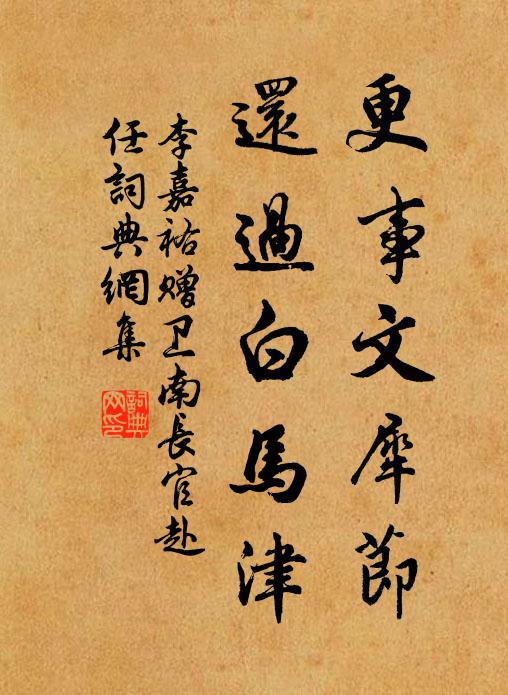 更事文犀節
還過白馬津
李嘉祐贈卫南長官赴
任詞典網集
詞典网印